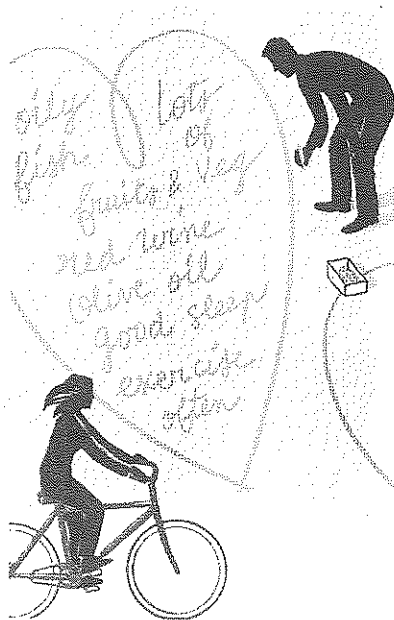 oily
fish
Lots
of
fruits & veg
red wine
olive oil
good sleep
exercise
often